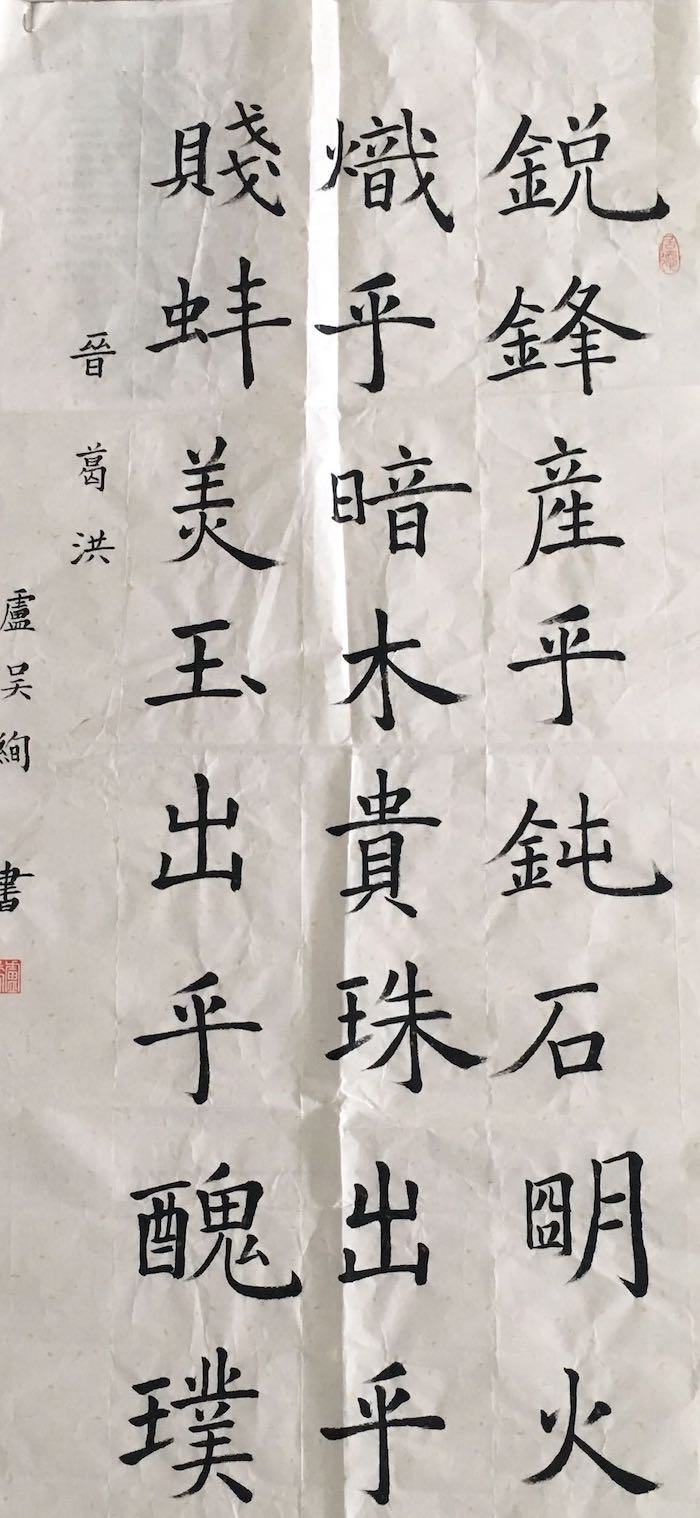 鋭鋒産乎鈍石朙火
熾乎暗木貴珠出乎
賤蚌美玉出乎醜璞
晉 葛洪
盧吴絢 書